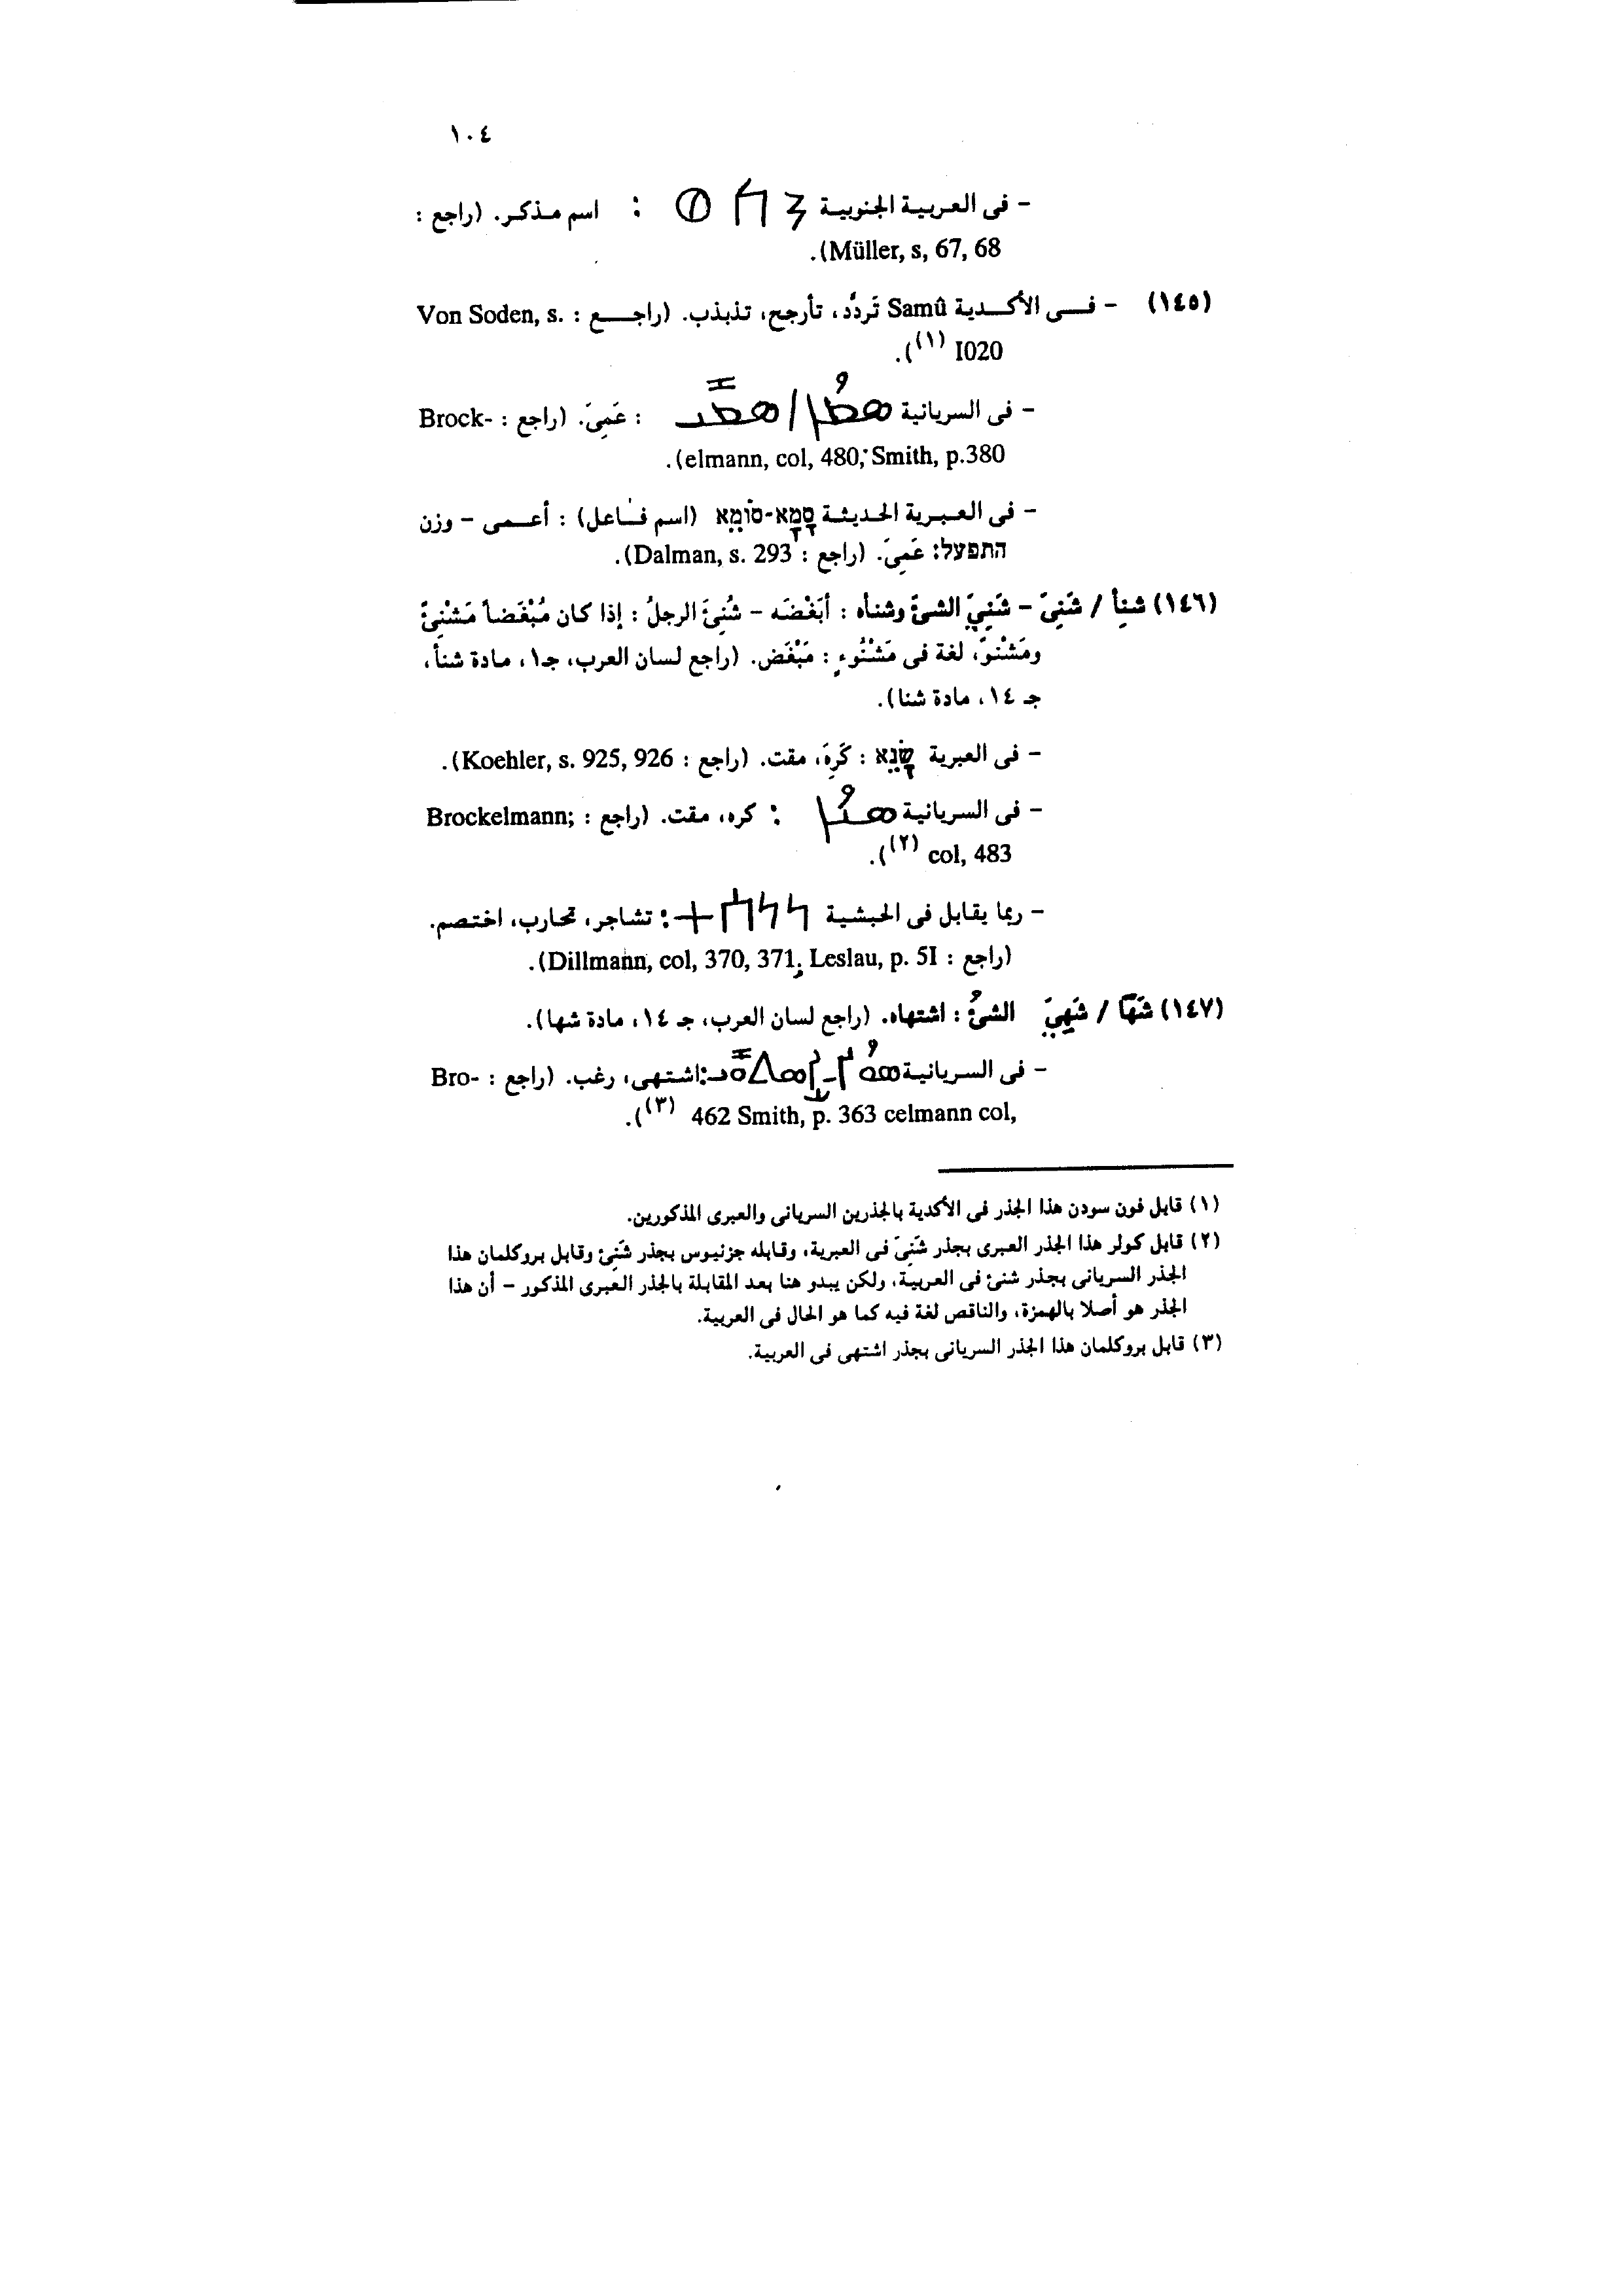 ١٠٤
- فى العربية الجنوبية : اسم مذكر. (راجع :
Müller, s, 67, 68).
(١٤٥) - فى الأكدية Samû تَردَّد، تأرجح، تذبذب. (راجع : Von Soden, s.
I020 (١)).
- فى السريانية : عَمِىَ. (راجع : Brock-
elmann, col, 480; Smith, p.380).
- فى العبرية الحديثة סָמָא-סוֹמֵא (اسم فاعل) : أعمى - وزن
התפעל: عَمِىَ. (راجع : Dalman, s. 293).
(١٤٦) شنِأ / شَنِىَ - شَنِىَ الشئَ وشنأه : أبَغْضَه - شُنِئَ الرجلُ : إذا كان مُبْغَضاً مَشْنِىٌّ
ومَشْنوّ، لغة فى مَشْنُوءٍ : مَبْغَض. (راجع لسان العرب، جـ١، مادة شنأ،
جـ ١٤، مادة شنا).
- فى العبرية שָׂנֵא : كَرِهَ، مقت. (راجع : Koehler, s. 925, 926).
- فى السريانية : كره، مقت. (راجع : Brockelmann;
col, 483 (٢)).
- ربما يقابل فى الحبشية : تشاجر، تحارب، اختصم.
(راجع : Dillmann, col, 370, 371; Leslau, p. 5I).
(١٤٧) شَهَا / شَهِىَ الشئُ : اشتهاه. (راجع لسان العرب، جـ ١٤، مادة شها).
- فى السريانية :اشتهى، رغب. (راجع : Bro-
462 Smith, p. 363 celmann col, (٣)).
(١) قابل فون سودن هذا الجذر فى الأكدية بالجذرين السريانى والعبرى المذكورين.
(٢) قابل كولر هذا الجذر العبرى بجذر شَنِىَ فى العبرية، وقابله جزنيوس بجذر شَنِئ وقابل بروكلمان هذا
الجذر السريانى بجذر شنئ فى العربية، ولكن يبدو هنا بعد المقابلة بالجذر العبرى المذكور - أن هذا
الجذر هو أصلا بالهمزة، والناقص لغة فيه كما هو الحال فى العربية.
(٣) قابل بروكلمان هذا الجذر السريانى بجذر اشتهى فى العربية.